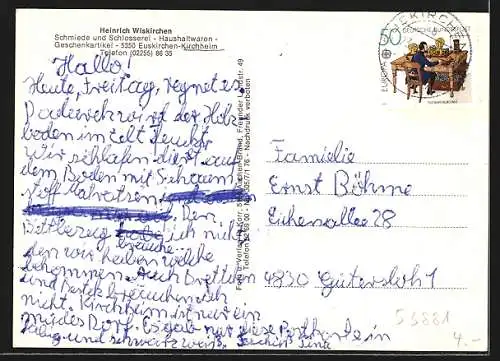 Heinrich Wiskirchen
Schmiede und Schlosserei - Haushaltwaren -
Geschenkartikel - 5350 Euskirchen-Kirchheim
Telefon (02255) 86 35
Hallo!
Heute, Freitag, regnet es.
Dadurch wird der Holz
boden im Zelt feucht.
Wir schlafen dort auf
dem Boden mit Schaum
stoff Matratzen.
Den
Bettbezug habe ich nicht
brauche
den wir haben welche
bekommen. Auch Brettum
und Besteck brauchen ich
nicht. Kirchheim ist nur ein
mudes Dorf. Es gab nur diese Postkarte in
farbig und schwarz weiß.
Nachdruck verboten
EUSKIRCHEN
50
DEUTSCHE BUNDESPOST
EUROPA
Familie
Ernst Böhme
Eichenallee 28
4830 Gütersloh 1
53881
4.-